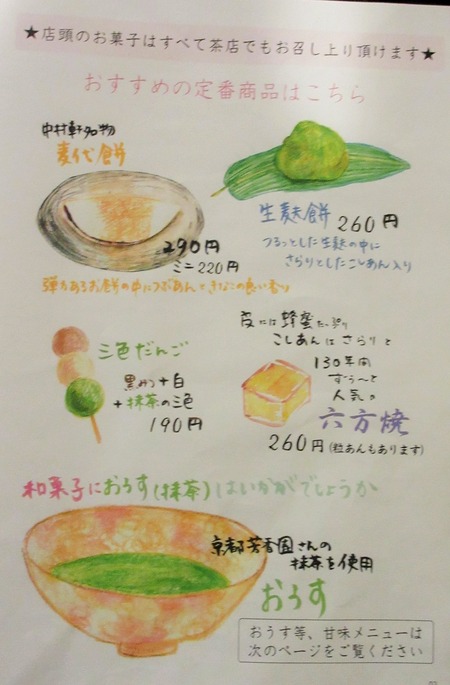 ★店頭のお菓子はすべて茶店でもお召し上り頂けます★
おすすめの定番商品はこちら
中村軒名物
麦代餅
290円
ミニ220円
弾力あるお餅の中につぶあんときなこの良い香り
生麩餅 260円
つるっとした生麩の中に
さらりとしたこしあん入り
三色だんご
黒みつ+白
+抹茶の三色
190円
皮には蜂蜜たっぷり
こしあんはさらりと
130年間
ずぅ〜と
人気の
六方焼
260円(粒あんもあります)
和菓子におうす(抹茶)はいかがでしょうか
京都芳香園さんの
抹茶を使用
おうす
おうす等、甘味メニューは
次のページをご覧ください